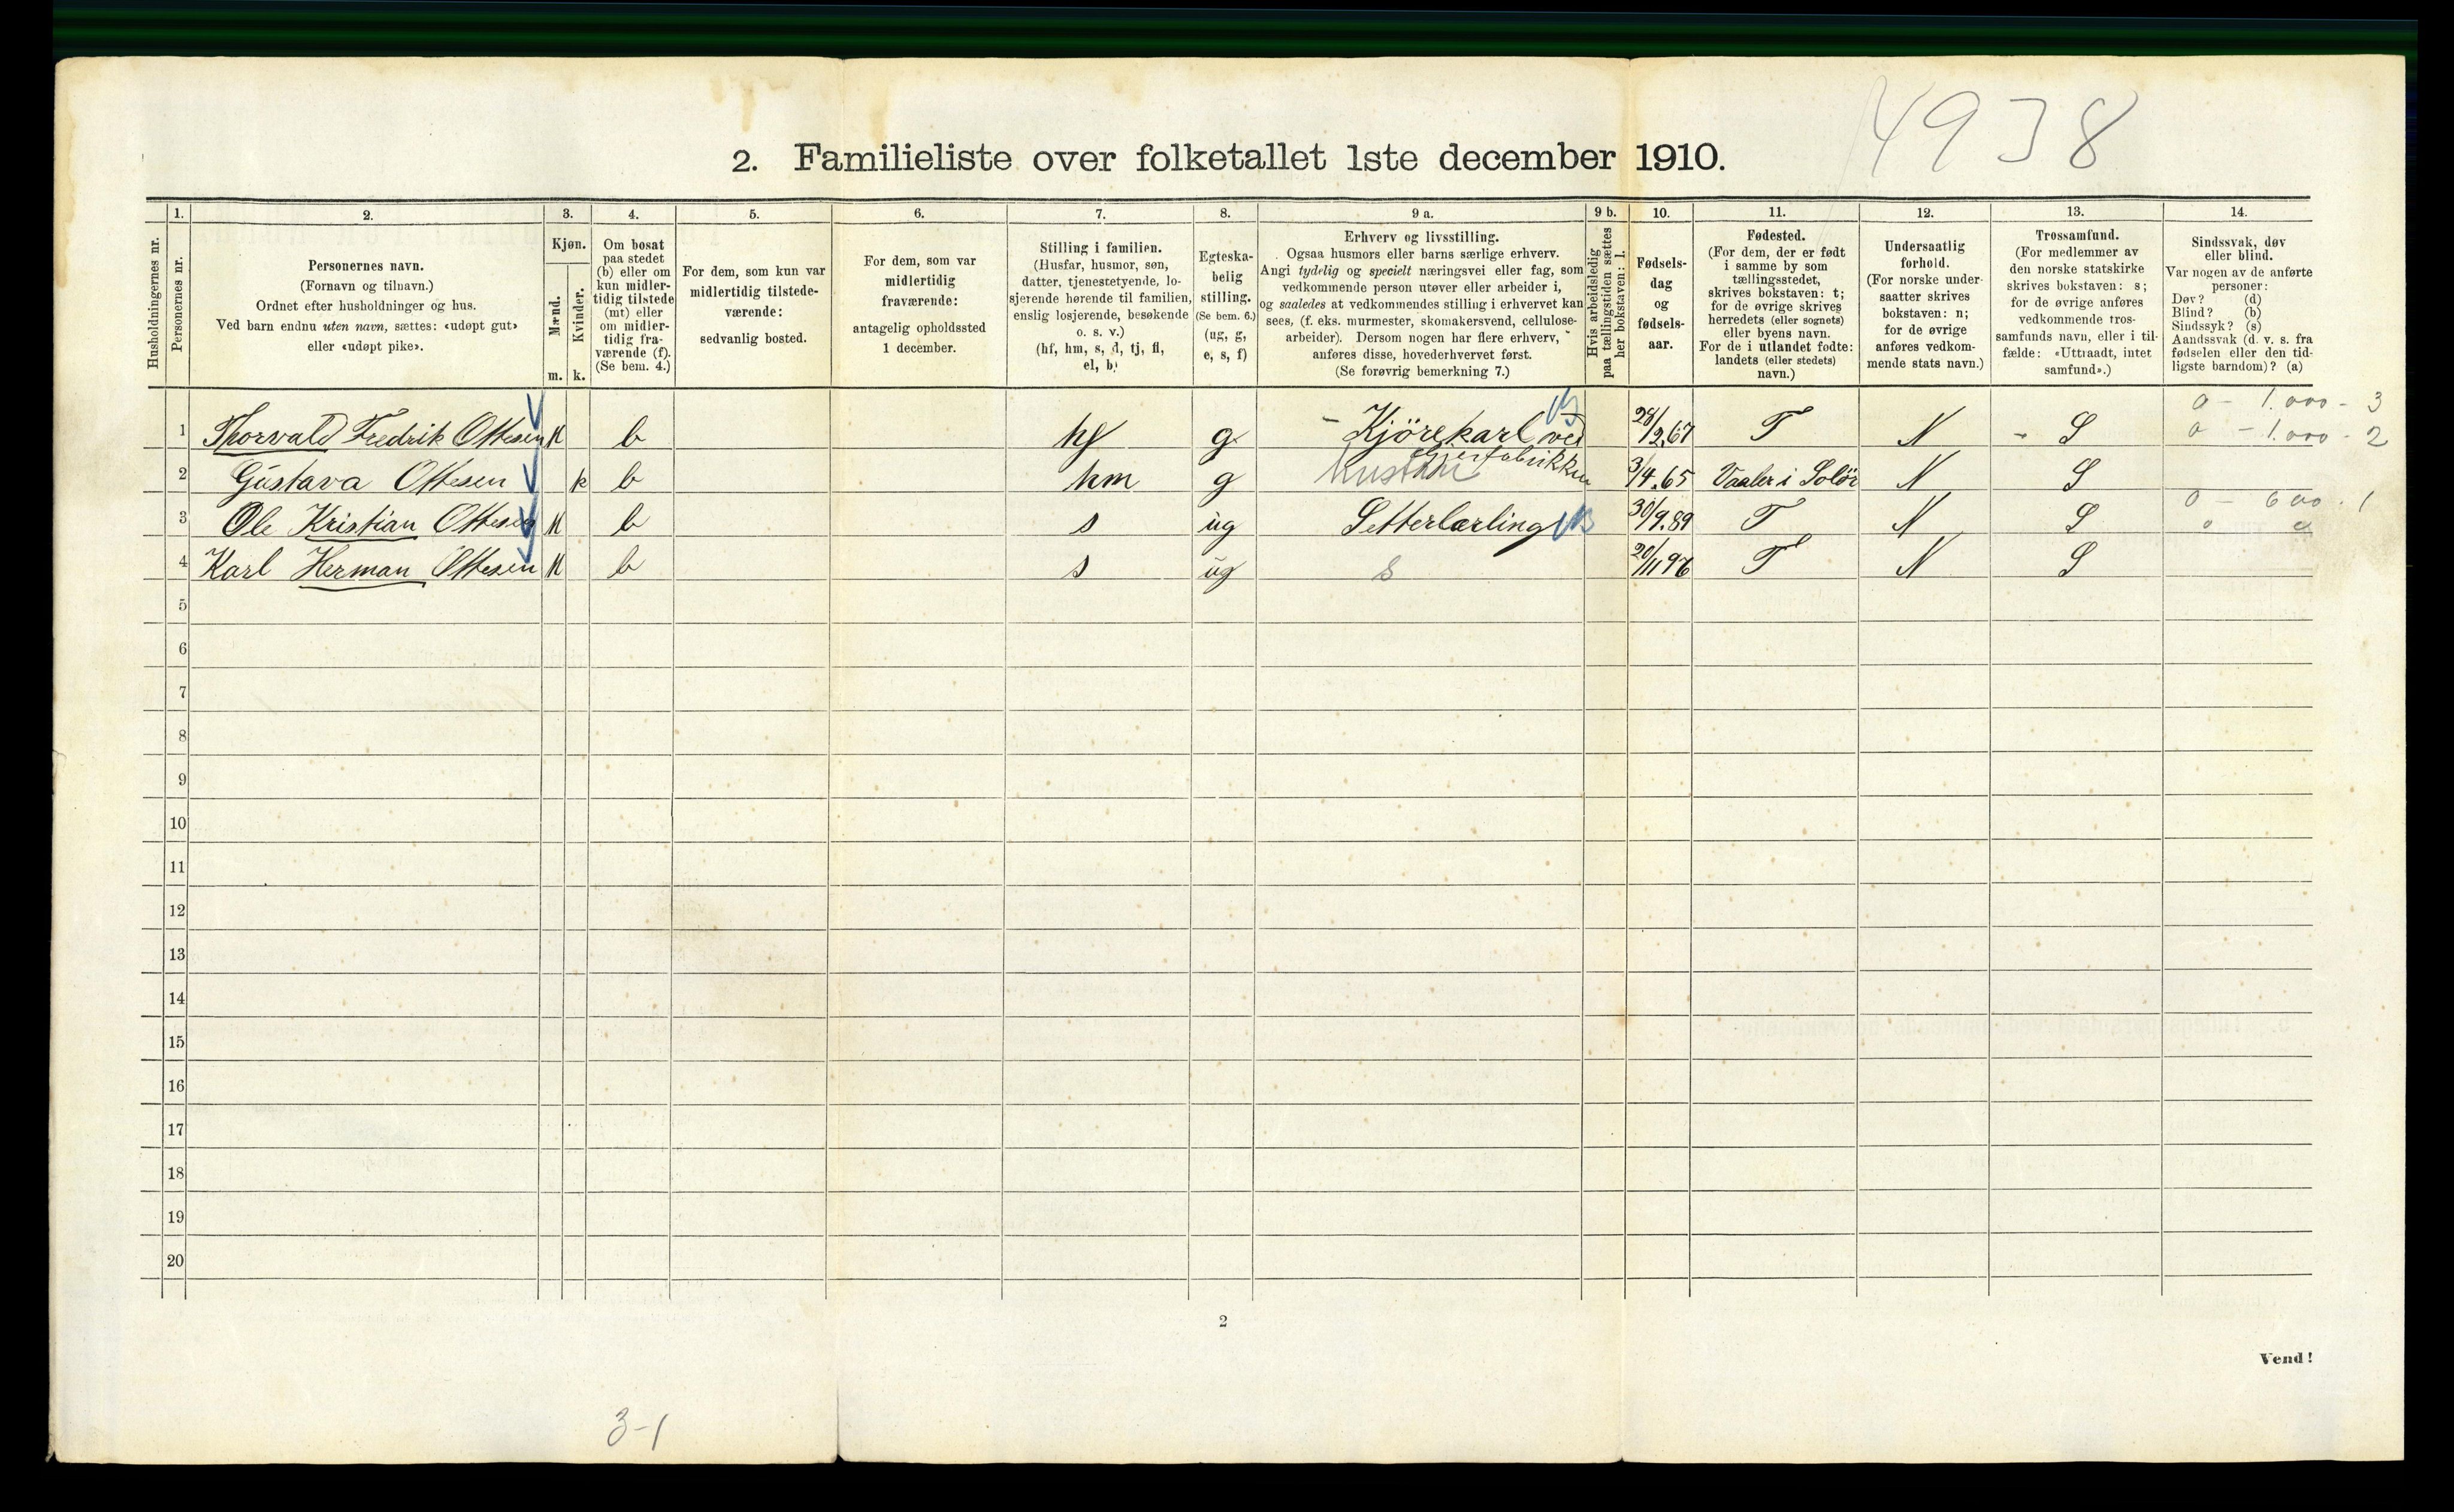 4938
2. Familieliste over folketallet 1ste december 1910.
1. 2. 3. 4. 5. 6. 7. 8. 9 a. 9 b. 10. 11. 12. 13. 14.
Husholdningernes nr.
Personernes nr.
Personernes navn.
(Fornavn og tilnavn.)
Ordnet efter husholdninger og hus.
Ved barn endnu uten navn, sættes: «udøpt gut»
eller «udøpt pike».
Kjøn.
Mænd.
Kvinder.
m. k.
Om bosat
paa stedet
(b) eller om
kun midler-
tidig tilstede
(mt) eller
om midler-
tidig fra-
værende (f).
(Se bem. 4.)
For dem, som kun var
midlertidig tilstede-
værende:
sedvanlig bosted.
For dem, som var
midlertidig
fraværende:
antagelig opholdssted
1 december.
Stilling i familien.
(Husfar, husmor, søn,
datter, tjenestetyende, lo-
sjerende hørende til familien,
enslig losjerende, besøkende
o. s. v.)
(hf, hm, s, d, tj, fl,
el, b)
Egteska-
belig
stilling.
(Se bem. 6.)
(ug, g,
e, s, f)
Erhverv og livsstilling.
Ogsaa husmors eller barns særlige erhverv.
Angi tydelig og specielt næringsvei eller fag, som
vedkommende person utøver eller arbeider i,
og saaledes at vedkommendes stilling i erhvervet kan
sees, (f. eks. murmester, skomakersvend, cellulose-
arbeider). Dersom nogen har flere erhverv,
anføres disse, hovederhvervet først.
(Se forøvrig bemerkning 7.)
Hvis arbeidsledig
paa tællingstiden sættes
her bokstaven: l.
Fødsels-
dag
og
fødsels-
aar.
Fødested.
(For dem, der er født
i samme by som
tællingsstedet,
skrives bokstaven: t;
for de øvrige skrives
herredets (eller sognets)
eller byens navn.
For de i utlandet fødte:
landets (eller stedets)
navn.)
Undersaatlig
forhold.
(For norske under-
saatter skrives
bokstaven: n;
for de øvrige
anføres vedkom-
mende stats navn.)
Trossamfund.
(For medlemmer av
den norske statskirke
skrives bokstaven: s;
for de øvrige anføres
vedkommende tros-
samfunds navn, eller i til-
fælde: «Uttraadt, intet
samfund».)
Sindssvak, døv
eller blind.
Var nogen av de anførte
personer:
Døv? (d)
Blind? (b)
Sindssyk? (s)
Aandssvak (d. v. s. fra
fødselen eller den tid-
ligste barndom)? (a)
0 - 1.000 - 3
1 Thorvald Fredrik Ottesen M b hf g - Kjörekarl ved 28/2.67 T N - S 0 - 1.000 - 2
2 Gustava Ottesen k b hm g 3/4.65 Vaaler i Solör N S
0 - 600 - 1
3 Ole Kristian Ottesen M b s ug Setterlærling 30/9.89 T N S
4 Karl Herman Ottesen M b s ug s 20/11 96 T N S
5
6
7
8
9
10
11
12
13
14
15
16
17
18
19
20
2
Vend!
3-1